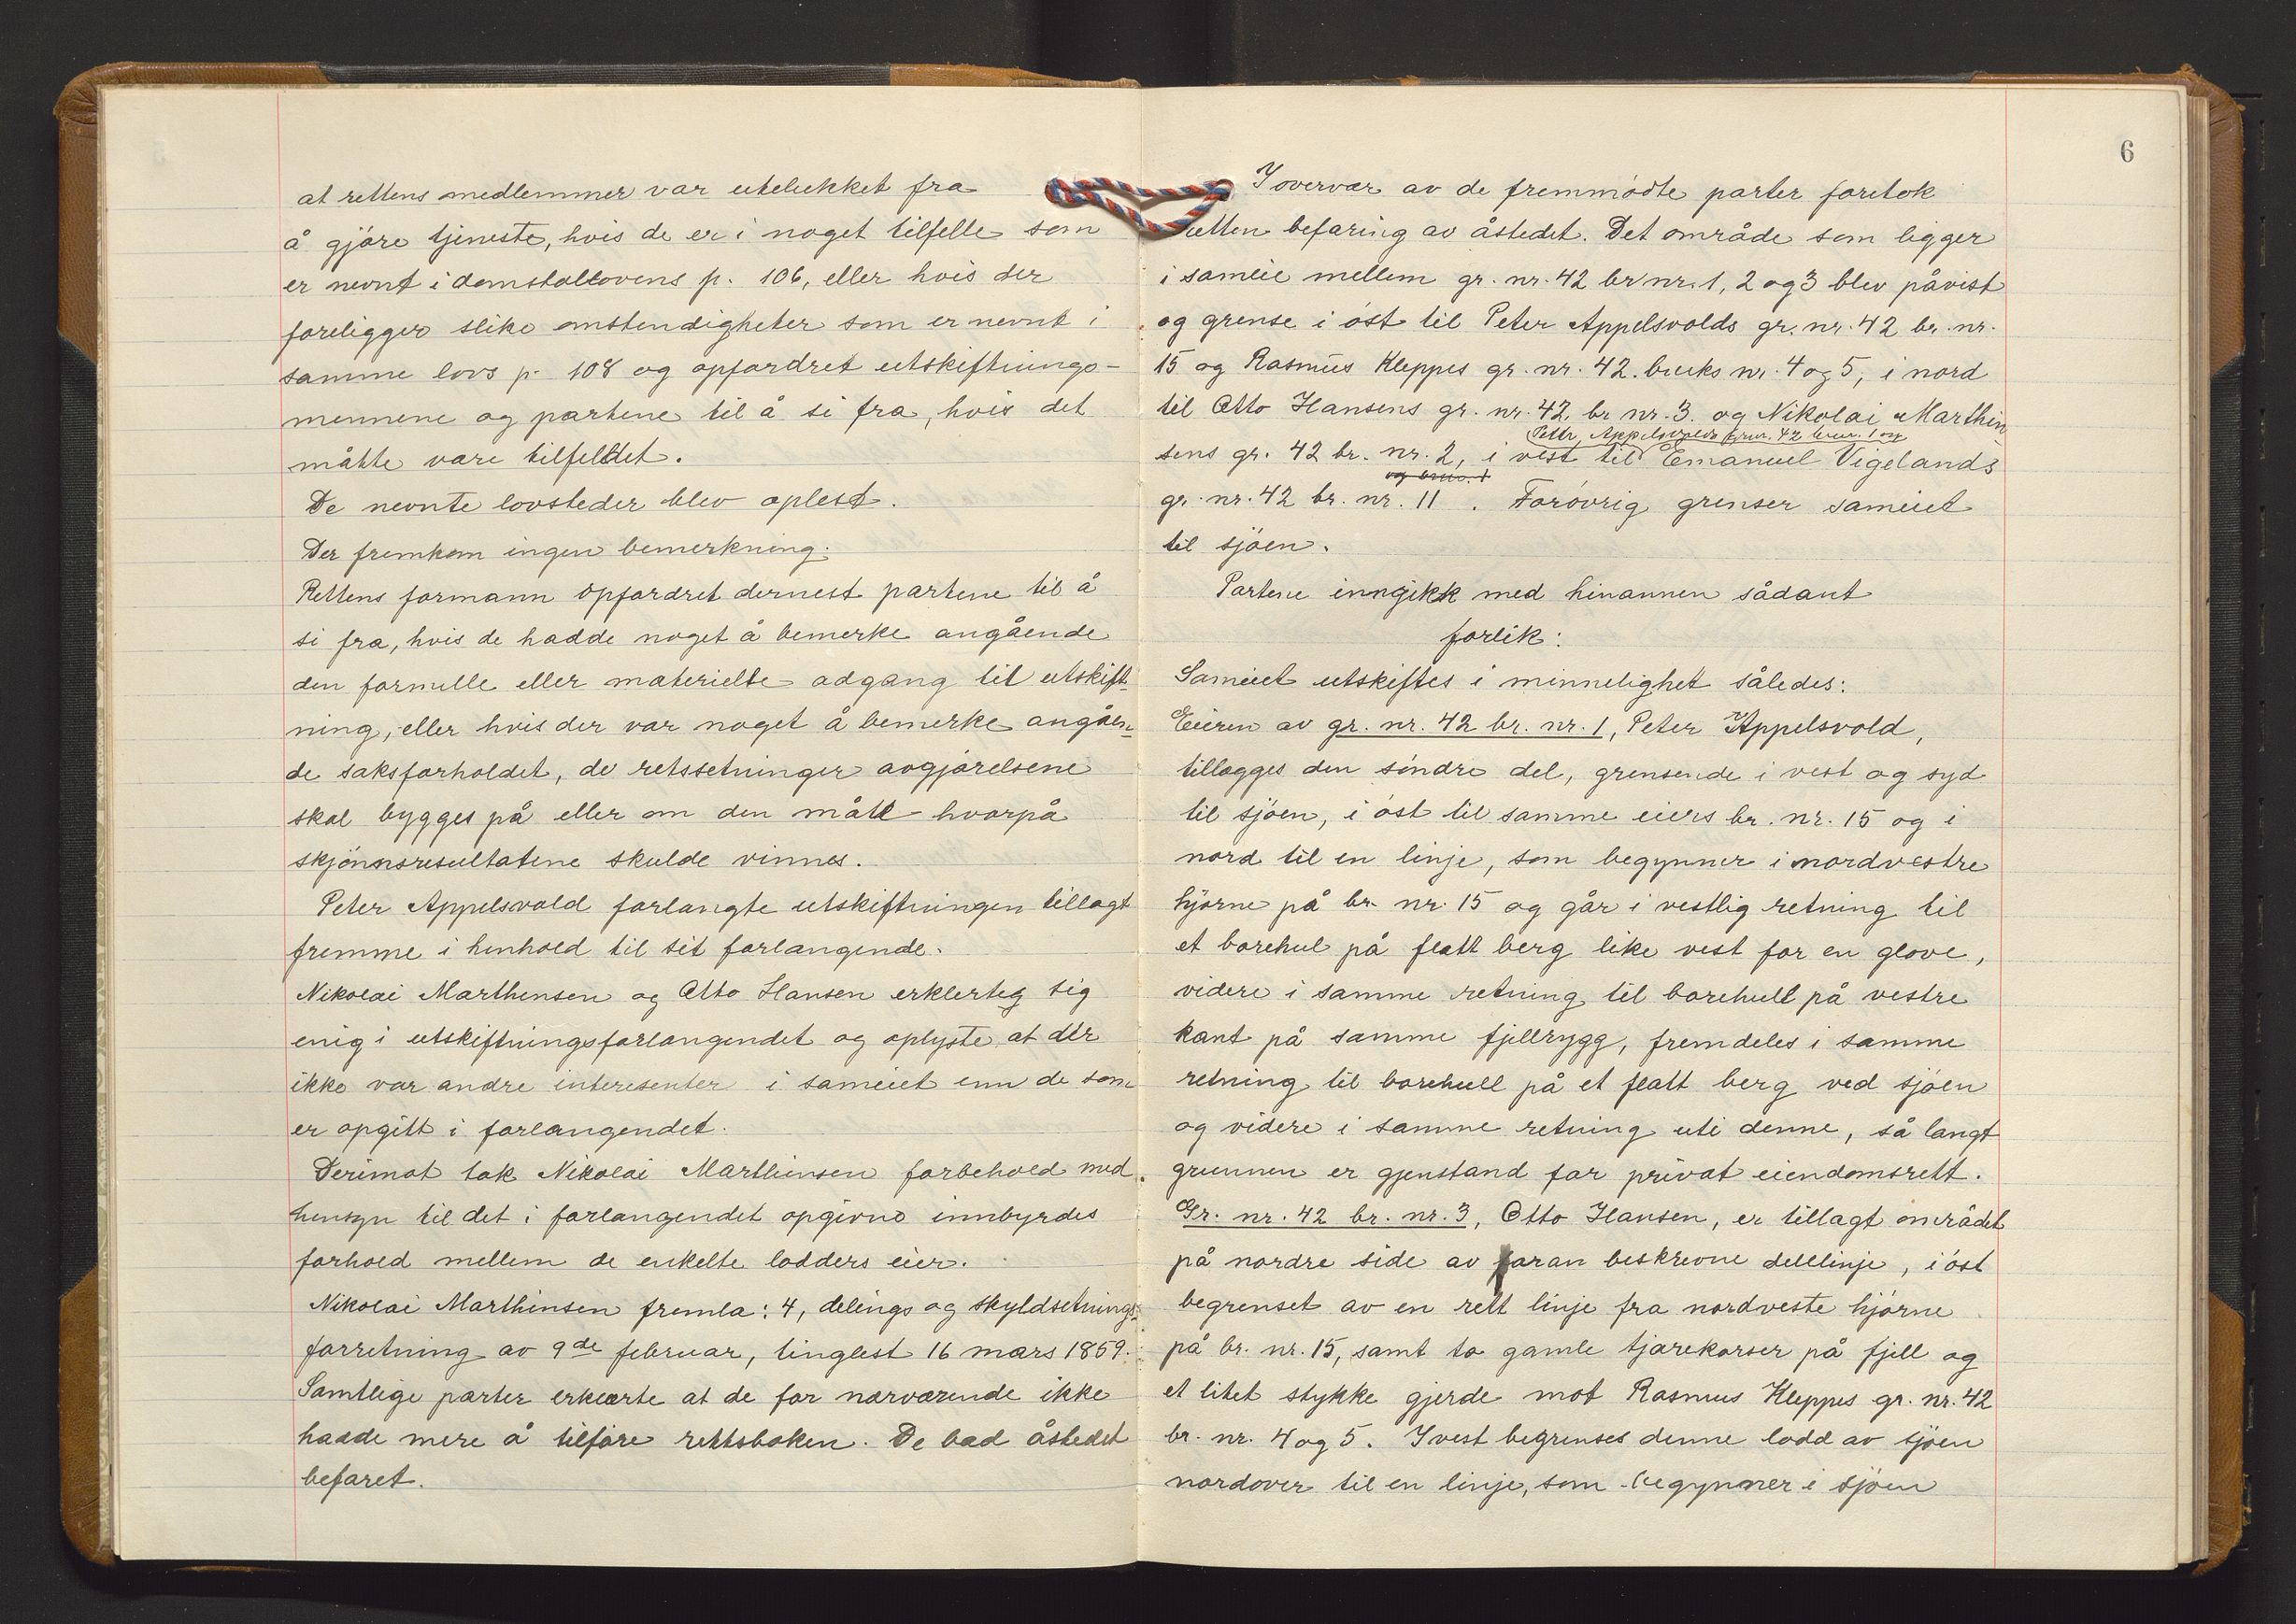 at rettens medlemmer var utelukket fra
å gjöre tjeneste, hvis de er i noget tilfelle som
er nevnt i domstollovens p. 106, eller hvis der
foreligger slike omstendigheter som er nevnt i
samme lovs p. 108 og opfordret utskiftnings-
mennene og partene til å si fra, hvis det
måtte være tilfelldet.
De nevnte lovsteder blev oplest.
Der fremkom ingen bemerkning.
Rettens formann opfordret dernest partene til å
si fra, hvis de hadde noget å bemerke angående
den formelle eller materielle adgang til utskift-
ning, eller hvis der var noget å bemerke angåen-
de saksforholdet, de retssetninger avgjörelsene
skal bygges på eller om den måte hvorpå
skjönnsresultatene skulde vinnes.
Peter Appelsvold forlangte utskiftningen tillagt
fremme i henhold til sit forlangende.
Nikolai Marthensen og Otto Hansen erklerteg sig
enig i utskiftningsforlangendet og oplyste at der
ikke var andre interesenter i sameiet enn de som
er opgitt i forlangendet.
Derimot tok Nikolai Marthinsen forbehold med
hensyn til det i forlangendet opgivne innbyrdes
forhold mellem de enkelte lodders eier.
Nikolai Marthinsen fremla: 4, delings og skyldsetnings-
forretning av 9de februar, tinglest 16 mars 1859.
Samtlige parter erklærte at de for nærværende ikke
hadde mere å tilföre rettsboken. De bad åstedet
befaret.
6
I overvær av de fremmödte parter foretok
retten befaring av åstedet. Det område som ligger
i sameie mellem gr. nr. 42 br nr. 1, 2 og 3 blev påvist
og grense i öst til Peter Appelsvolds gr. nr. 42 br. nr.
15 og Rasmus Kleppes gr. nr. 42. bruks nr. 4 og 5, i nord
til Otto Hansens gr. nr. 42, br nr. 3. og Nikolai Marthin
Peter Appelsvolds grnr. 42 brnr. 1 og
sens gr. 42 br. nr. 2, i vest til Emanuel Vigelands
og brno. 1
gr. nr. 42 br. nr. 11 . Foróvrig grenser sameiet
til sjöen.
Partene inngikk med hinannen sådant
forlik:
Sameiet utskiftes i minnelighet således:
Eieren av gr. nr. 42 br. nr. 1, Peter Appelsvold,
tillegges den söndre del, grensende i vest og syd
til sjöen, i öst til samme eiers br. nr. 15 og i
nord til en linje, som begynner i nordvestre
hjörne på br. nr. 15 og går i vestlig retning til
et borehul på flatt berg like vest for en glove,
videre i samme retning til borehull på vestre
kant på samme fjellrygg, fremdeles i samme
retning til borehull på et flatt berg ved sjöen
og videre i samme retning uti denne, så langt
grunnen er gjenstand for privat eiendomsrett.
Gr. nr. 42 br. nr. 3, Otto Hansen, er tillagt området
på nordre side av foran beskrevne delelinje, i öst
begrenset av en rett linje fra nordveste hjörne
på br. nr. 15, samt to gamle tjærekorser på fjell og
et litet stykke gjerde mot Rasmus Kleppes gr. nr. 42
br. nr. 4 og 5. I vest begrenses denne lodd av sjöen
nordover til en linje, som begynner i sjöen